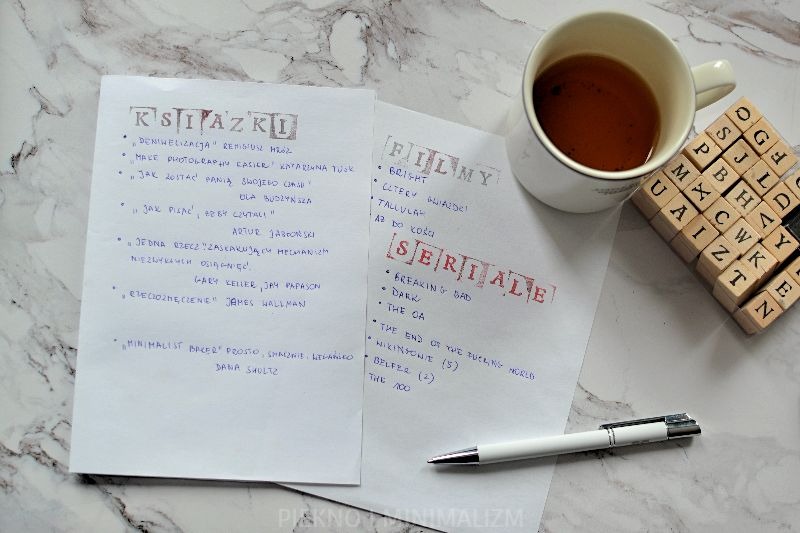 KSIĄZKI
• „DENIWELIZACJA" REMIGIUSZ MRÓZ
• „MAKE PHOTOGRAPHY EASIER" KATARZYNA TUSK
• „JAK ZOSTAĆ PANIĄ SWOJEGO CZASU"
OLA BUDZYŃSKA
• „JAK PISAĆ, ŻEBY CZYTALI"
ARTUR JABŁOŃSKI
• „JEDNA RZECZ" ZASKAKUJĄCY MECHANIZM
NIEZWYKŁYCH OSIĄGNIĘĆ
GARY KELLER, JAY PAPASON
• „RZECZOZMĘCZENIE" JAMES WALLMAN
• „MINIMALIST BAKER" PROSTO, SMACZNIE, WEGAŃSKO
DANA SHULTZ
FILMY
• BRIGHT
• CZTERY GWIAZDKI
• TALLULAH
AŻ DO KOŚCI
SERIALE
• BREAKING BAD
• DARK
• THE OA
• THE END OF THE FUCKING WORLD
• WIKINGOWIE (5)
• BELFER (2)
THE 100
O G H
P S J L D
M X P B H Z Y
U A I Z C W K E
T N
PIĘKNO I MINIMALIZM